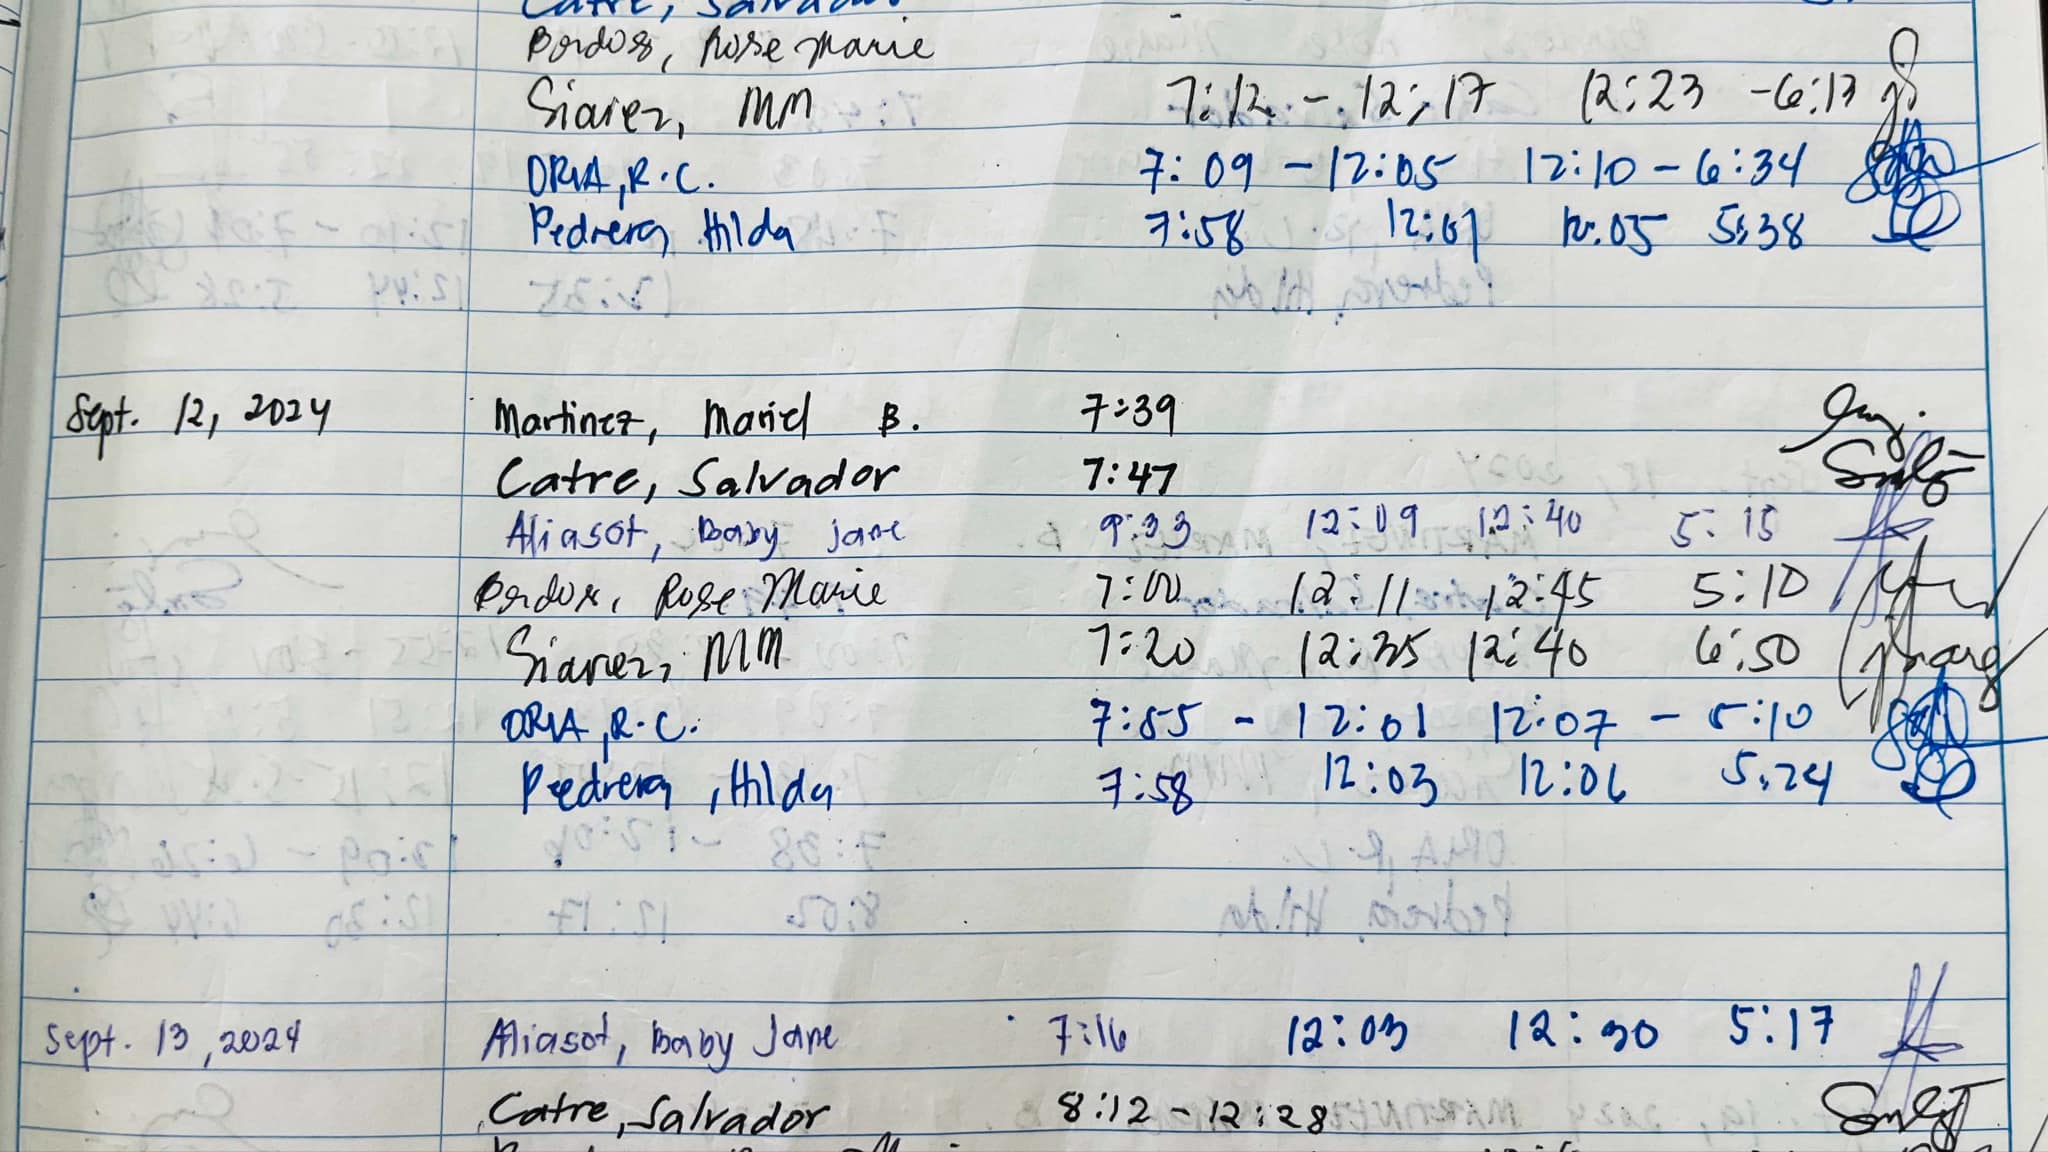 Catre, Salvador
Bordos, Rose Marie
Siarez, MM 7:12 - 12:17 12:23 - 6:13
ORIA, R.C. 7:09 - 12:05 12:10 - 6:34
Pedrera, Hilda 7:58 12:01 12:05 5:38
Sept. 12, 2024 Martinez, Mariel B. 7:39
Catre, Salvador 7:47
Aliasot, Baby Jane 9:33 12:09 12:40 5:15
Bordos, Rose Marie 7:00 12:11 12:45 5:10
Siarez, MM 7:20 12:35 12:40 6:50
ORIA, R.C. 7:55 - 12:01 12:07 - 5:10
Pedrera, Hilda 7:58 12:03 12:06 5:24
Sept. 13, 2024 Aliasot, Baby Jane 7:16 12:03 12:30 5:17
Catre, Salvador 8:12 - 12:28